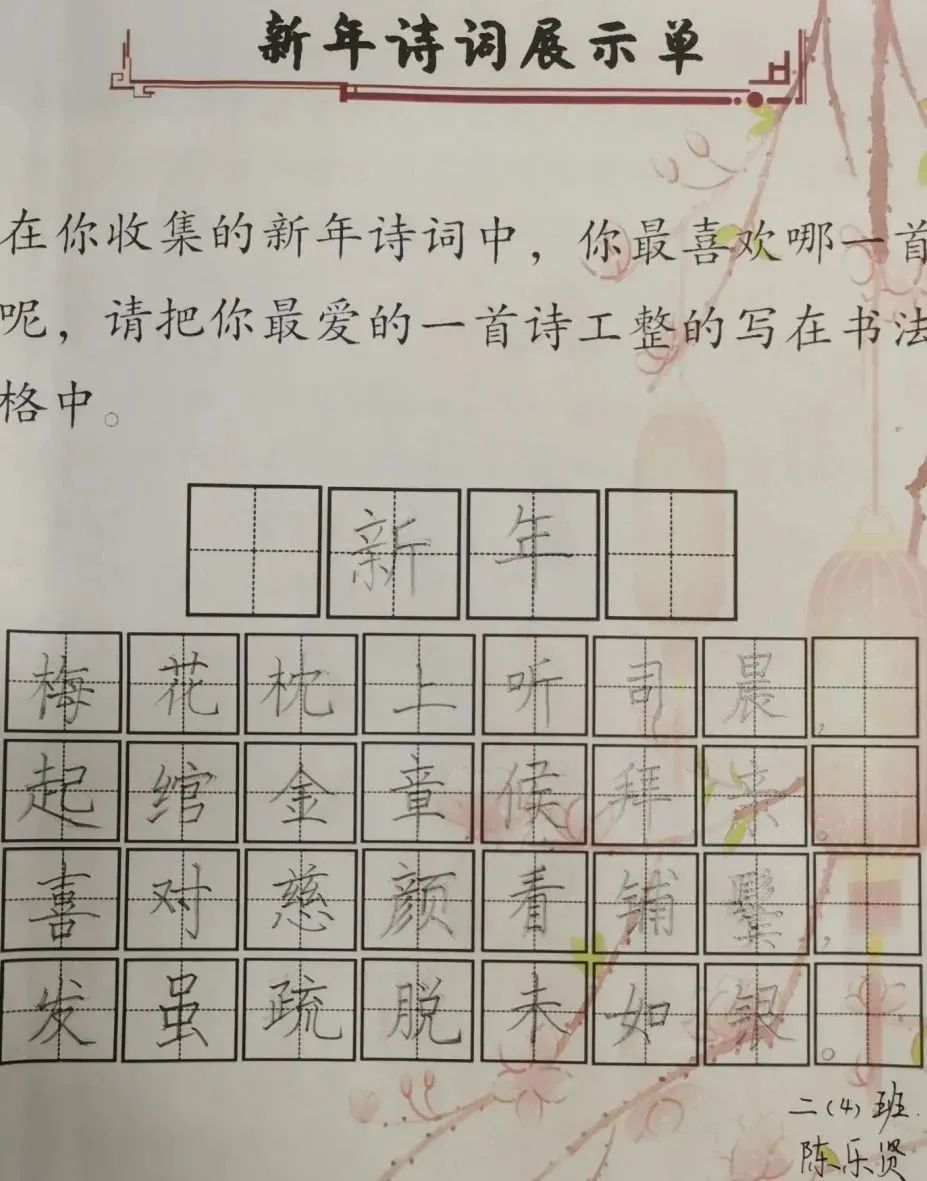 新年诗词展示单
在你收集的新年诗词中，你最喜欢哪一首
呢，请把你最爱的一首诗工整的写在书法
格中。
新年
梅花枕上听司晨，
起绾金章候拜亲。
喜对慈颜看铺鬓，
发虽疏脱未如银。
二（4）班
陈乐贤